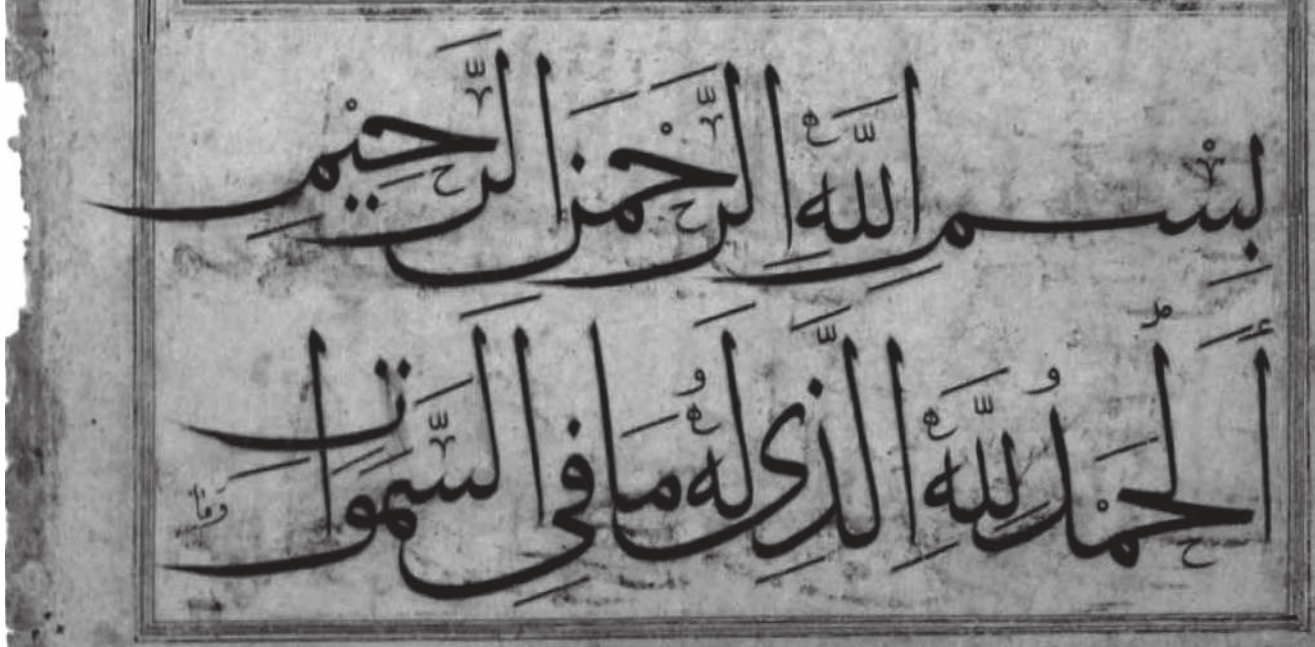 بِسْمِ اللَّهِ الرَّحْمَنِ الرَّحِيمِ
أَلْحَمْدُ لِلَّهِ الَّذِي لَهُ مَا فِي السَّمَوَاتِ
وَمَا